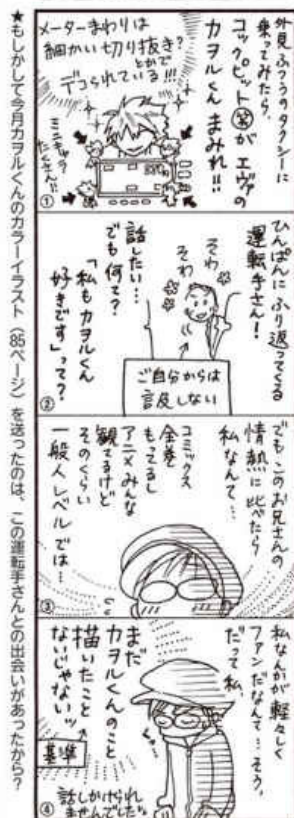 外見ふつうのタクシーに
乗ってみたら、
コックピット㊗がエヴァの
カヲルくんまみれ!!
メーターまわりは
細かい切り抜き?
とかで
デコられている!!!
ミニキャラ
たくさん!!
①
ひんぱんにふり返ってくる
運転手さん!
そわ
そわ
話したい…
でも何て?
「私もカヲルくん
好きです」って?
ご自分からは
言及しない
②
でもこのお兄さんの
情熱に比べたら
私なんて…
コミックス
全巻
もってるし
アニメみんな
観てるけど
そのくらい
一般人レベルでは…
③
私なんかが軽々しく
ファンだなんて…そう、
だって私、
まだ
カヲルくんのこと
描いたこと
ないじゃないッ
基準
話しかけられ
ませんでした。
④
★もしかして今月カヲルくんのカラーイラスト(85ページ)を送ったのは、この運転手さんとの出会いがあったから?